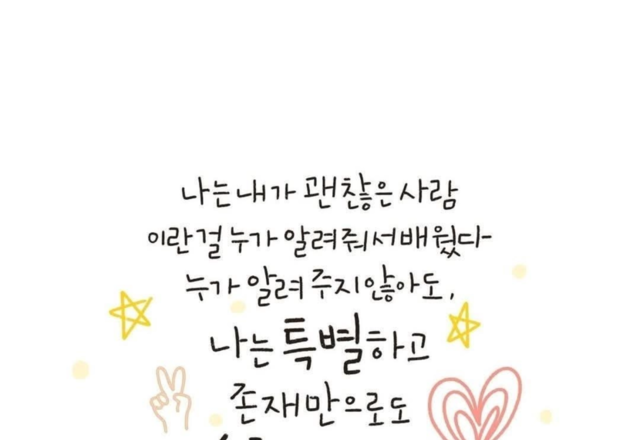 나는 내가 괜찮은 사람
이란걸 누가 알려줘서 배웠다
누가 알려 주지 않아도,
나는 특별하고
존재만으로도